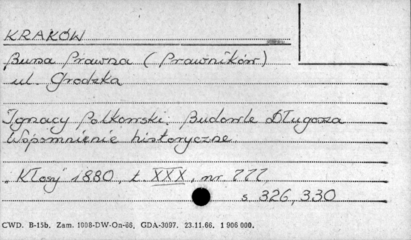 KRAKÓW
Bursa Prawna (Prawników)
ul. Grodzka
Ignacy Polkowski: Budowle Długosza
Wspomnienie historyczne.
"Kłosy" 1880, t. XXX, nr. 777
s 326, 330
CWD. B-15b, Zam. 1008-DW-On-66, GDA-3097. 23.11.66. 1 906 000.